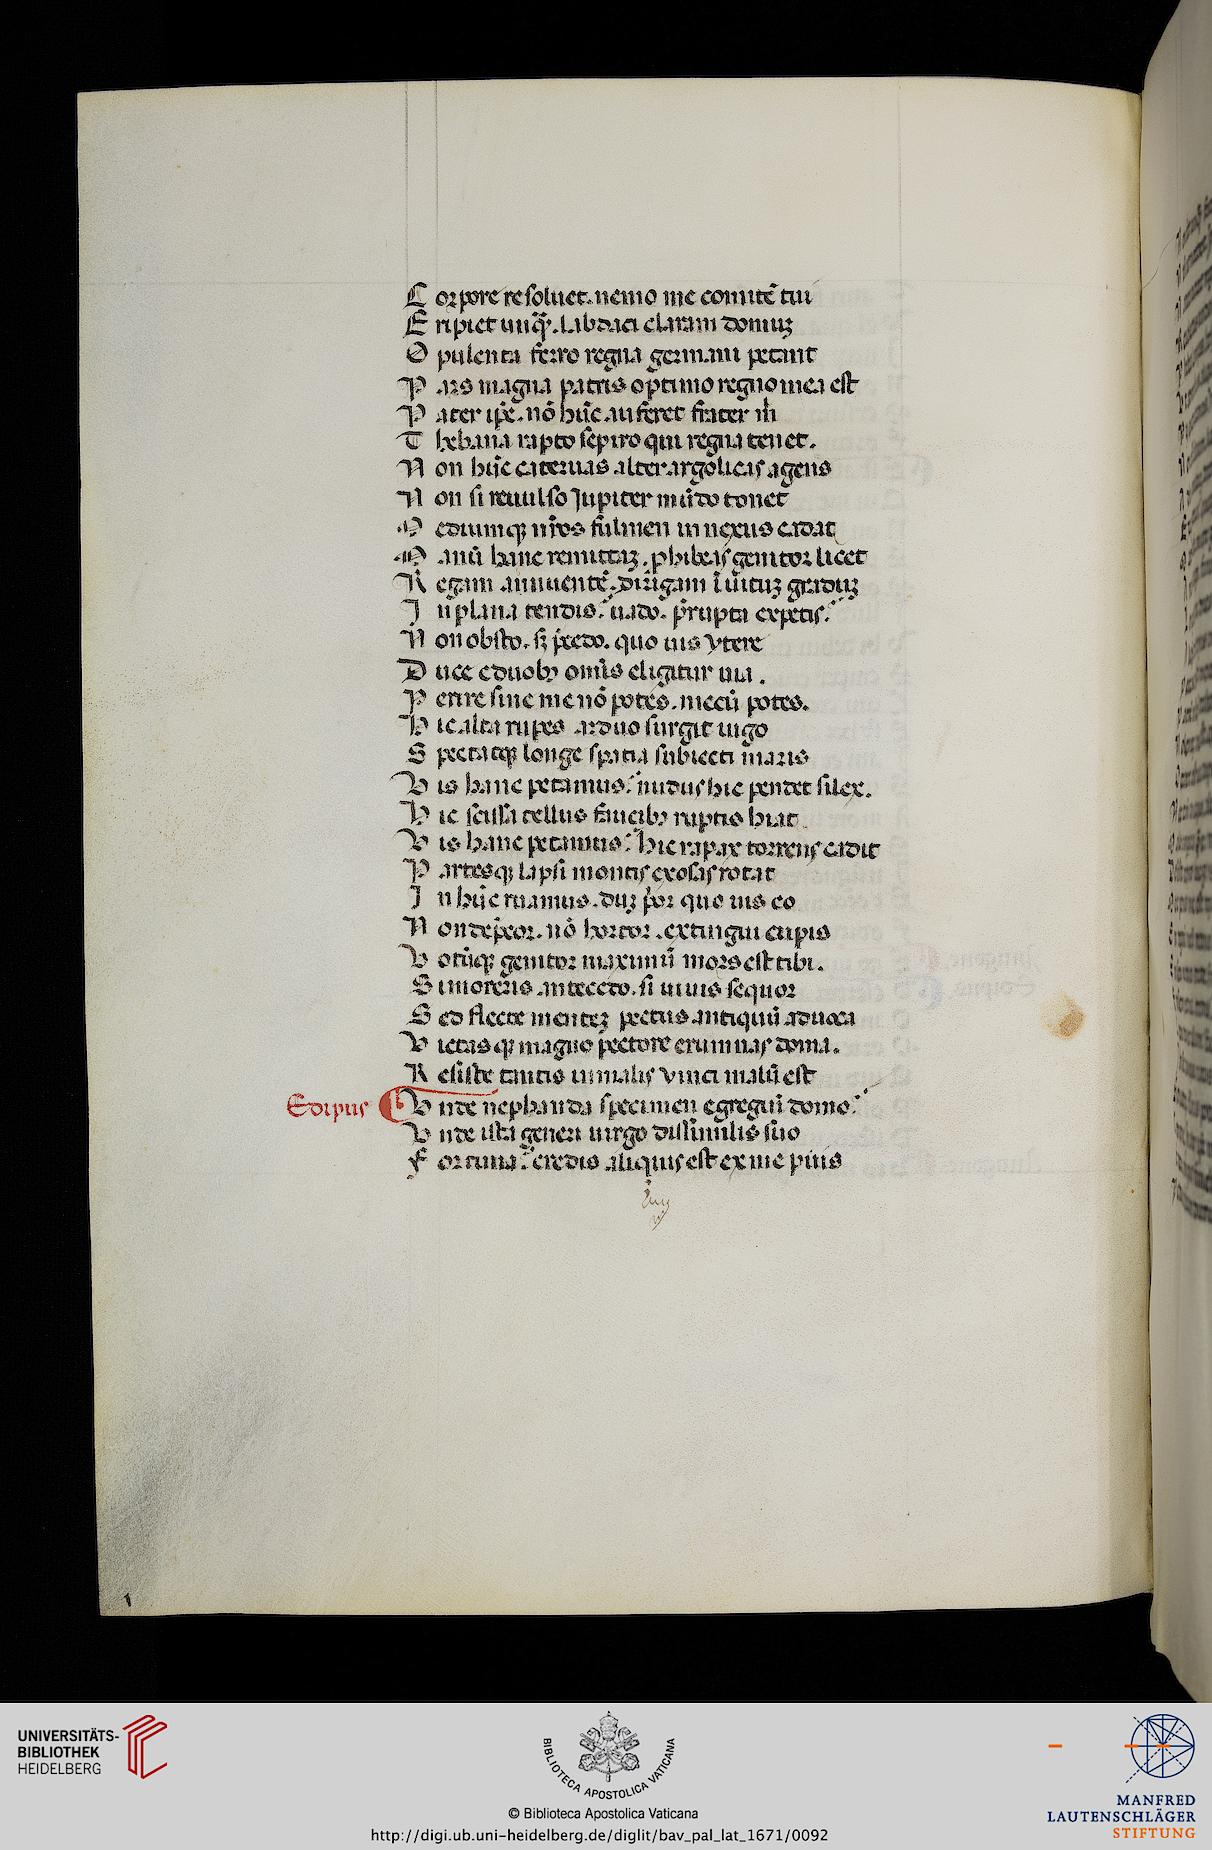 C orpore resoluet. nemo me comitē tui
E ripiet unq̄. labdaci claram domuz
O pulenta ferro regna germani petant
P ars magna patris optimo regno mea est
P ater ip̄e. nō hūc auferet frater m̄
T hebana rapto septro qui regna tenet.
N on hūc cateruas alter argolicas agens
N on si reuulso Jupiter mūdo tonet
M ediumq; nr̄os fulmen in nexus cadat
M anū hanc remittaz. phibeas genitor licet
R egam annuentē. dirigam īuituz graduz
I n plana tendis? uado. p̄rupta expetis?
N on obsto. sz p̄cedo. quo uis vtere
D uce e duobz omīs eligitur uia.
P erire sine me nō potes. mecū potes.
H ic alta rupes arduo surgit iugo
S pectatq; longe spatia subiecti maris
V is hanc petamus? nudus hic pendet silex.
H ic scissa tellus faucibz ruptis hiat
V is hanc petamus? hic rapax torrens cadit
P artesq; lapsi montis exosas rotat
I n hūc ruamus. duz p̄or quo uis eo
N on dep̄cor. nō hortor. extingui cupis
V otūq; genitor maximū mors est tibi.
S i moreris antecedo. si uiuis sequor
S ed flecte mentez pectus antiquū aduoca
V ictasq; magno pectore erumnas doma.
R esiste tantis in malis vinci malū est
Edipus V nde nephanda specimen egregiū domo?
V nde ista generi uirgo dissimilis suo
F ortuna? credis aliquis est ex me pius
UNIVERSITÄTS-
BIBLIOTHEK
HEIDELBERG
BIBLIOTECA APOSTOLICA VATICANA
© Biblioteca Apostolica Vaticana
http://digi.ub.uni-heidelberg.de/diglit/bav_pal_lat_1671/0092
MANFRED
LAUTENSCHLÄGER
STIFTUNG